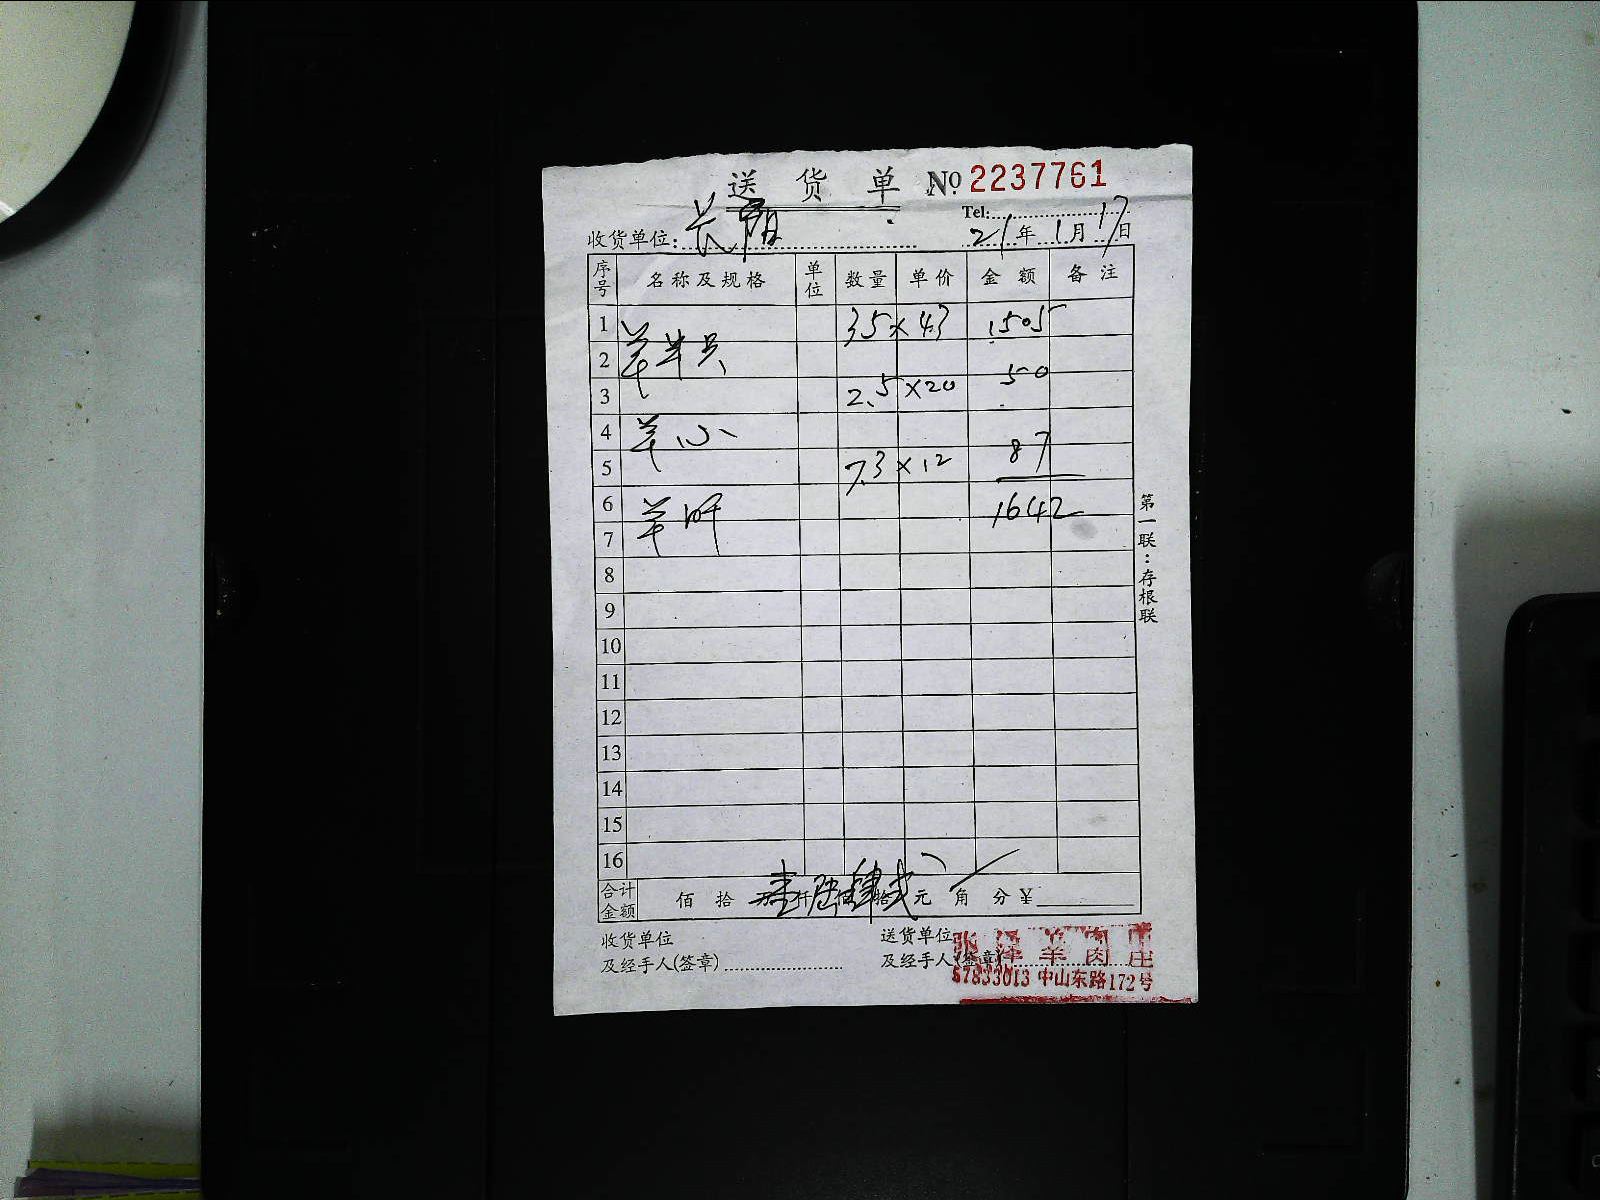 送 货 单 No 2237761
Tel:
收货单位: 长阳 21年1月17日
序号 名称及规格 单位 数量 单价 金额 备注
1 35×43 1505
2 羊半只
3 2.5×20 50
4 羊心
5 7.3×12 87
6 1642
7 羊肝
8
9
10
11
12
13
14
15
16
合计金额 佰 拾 万壹仟陆佰肆拾贰元 角 分 ¥
收货单位 送货单位
及经手人(签章) 及经手人(签章)
张泽羊肉庄
57833013 中山东路172号
第一联:存根联